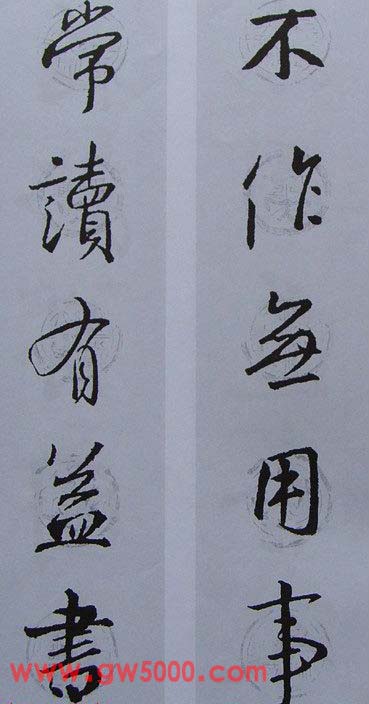 不作無用事
常讀有益書
www.gw5000.com